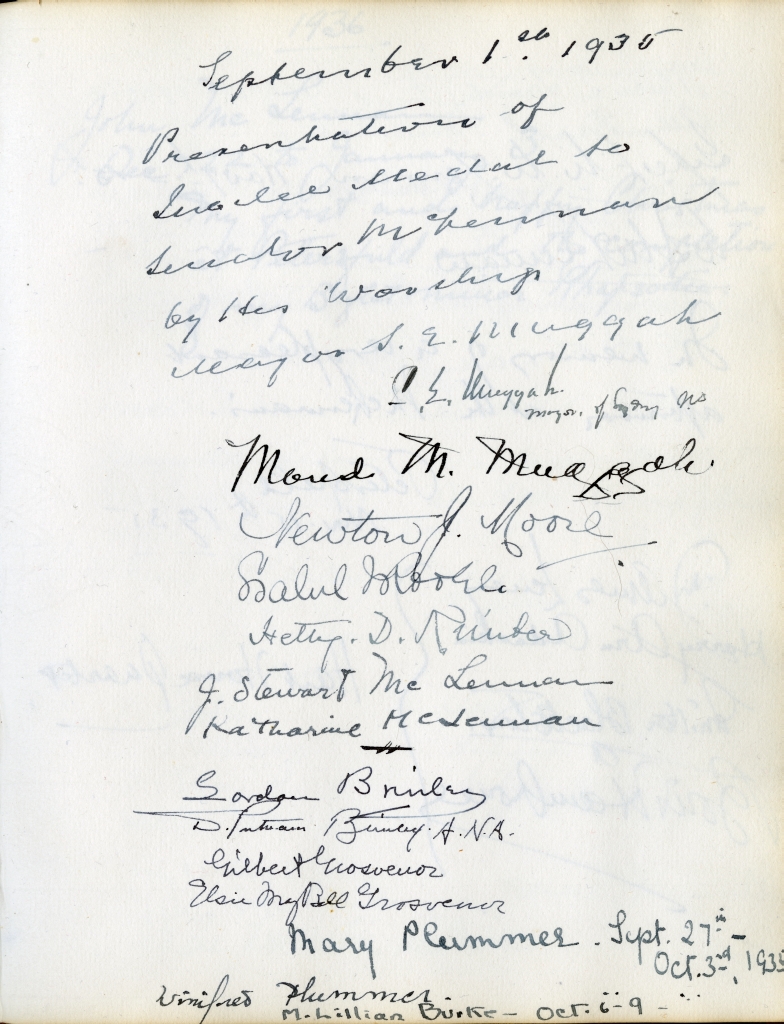 September 1st 1935
Presentation of
Jubilee Medal to
Senator McLennan
by His Worship
Mayor S. E. Muggah
S. E. Muggah.
Mayor. of Sydney NS
Maud M. Muggah.
Newton J. Moore
Isabel Moore.
Hetty. D. Kimber
J. Stewart McLennan
Katharine McLennan
Gordon Brinley
D. Putnam Brinley. A.N.A.
Gilbert Grosvenor
Elsie May Bell Grosvenor
Mary Plummer. Sept. 27th -
Oct. 3rd, 1935
Winifred Plummer.
M. Lillian Burke - Oct. 6-9 - "